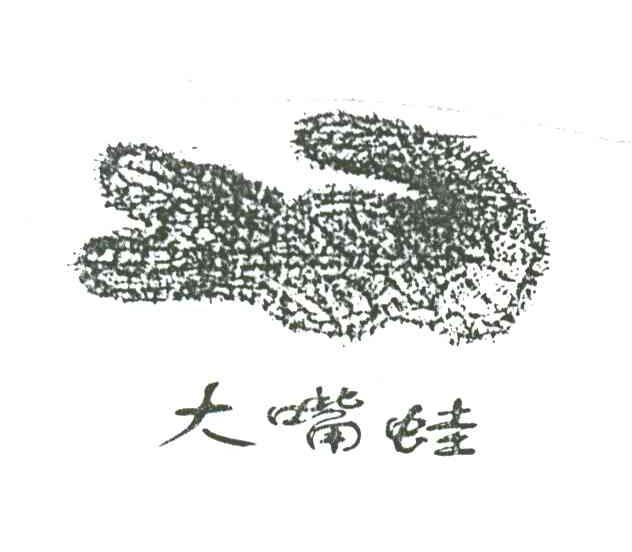 大嘴蛙